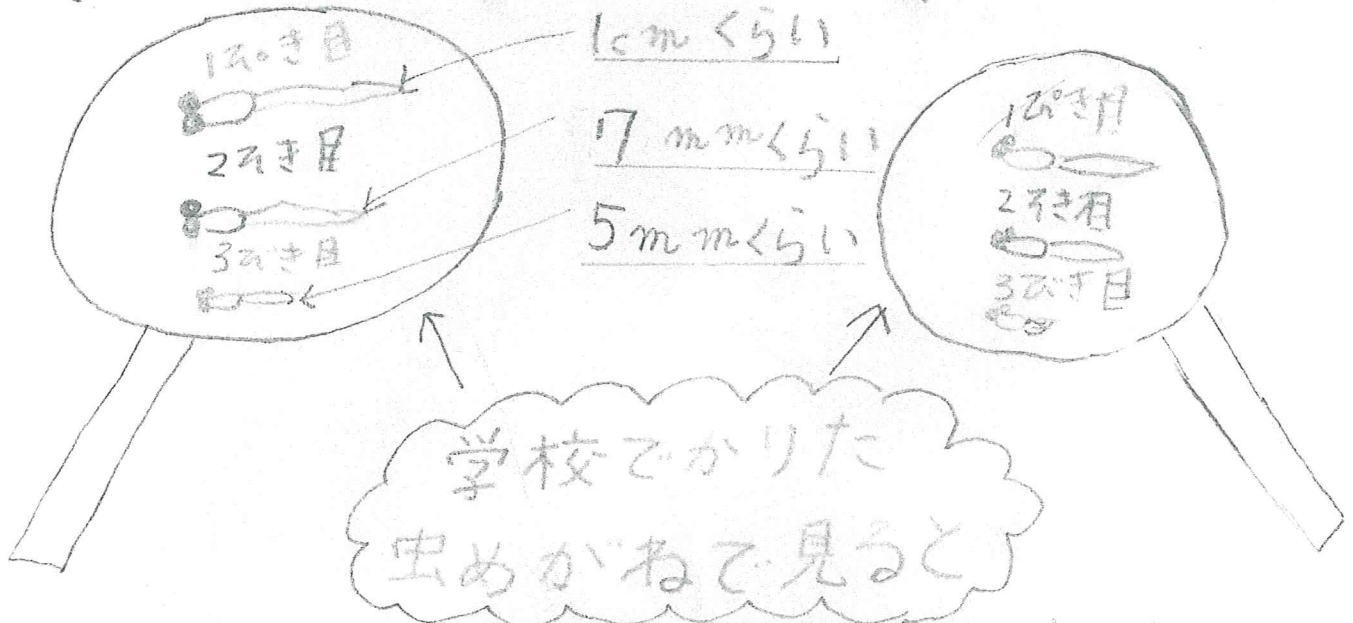 1ぴき目
2ひき目
3びき目
1cmくらい
7mmくらい
5mmくらい
1ぴき目
2ひき目
3びき目
学校でかりた
虫めがねで見ると